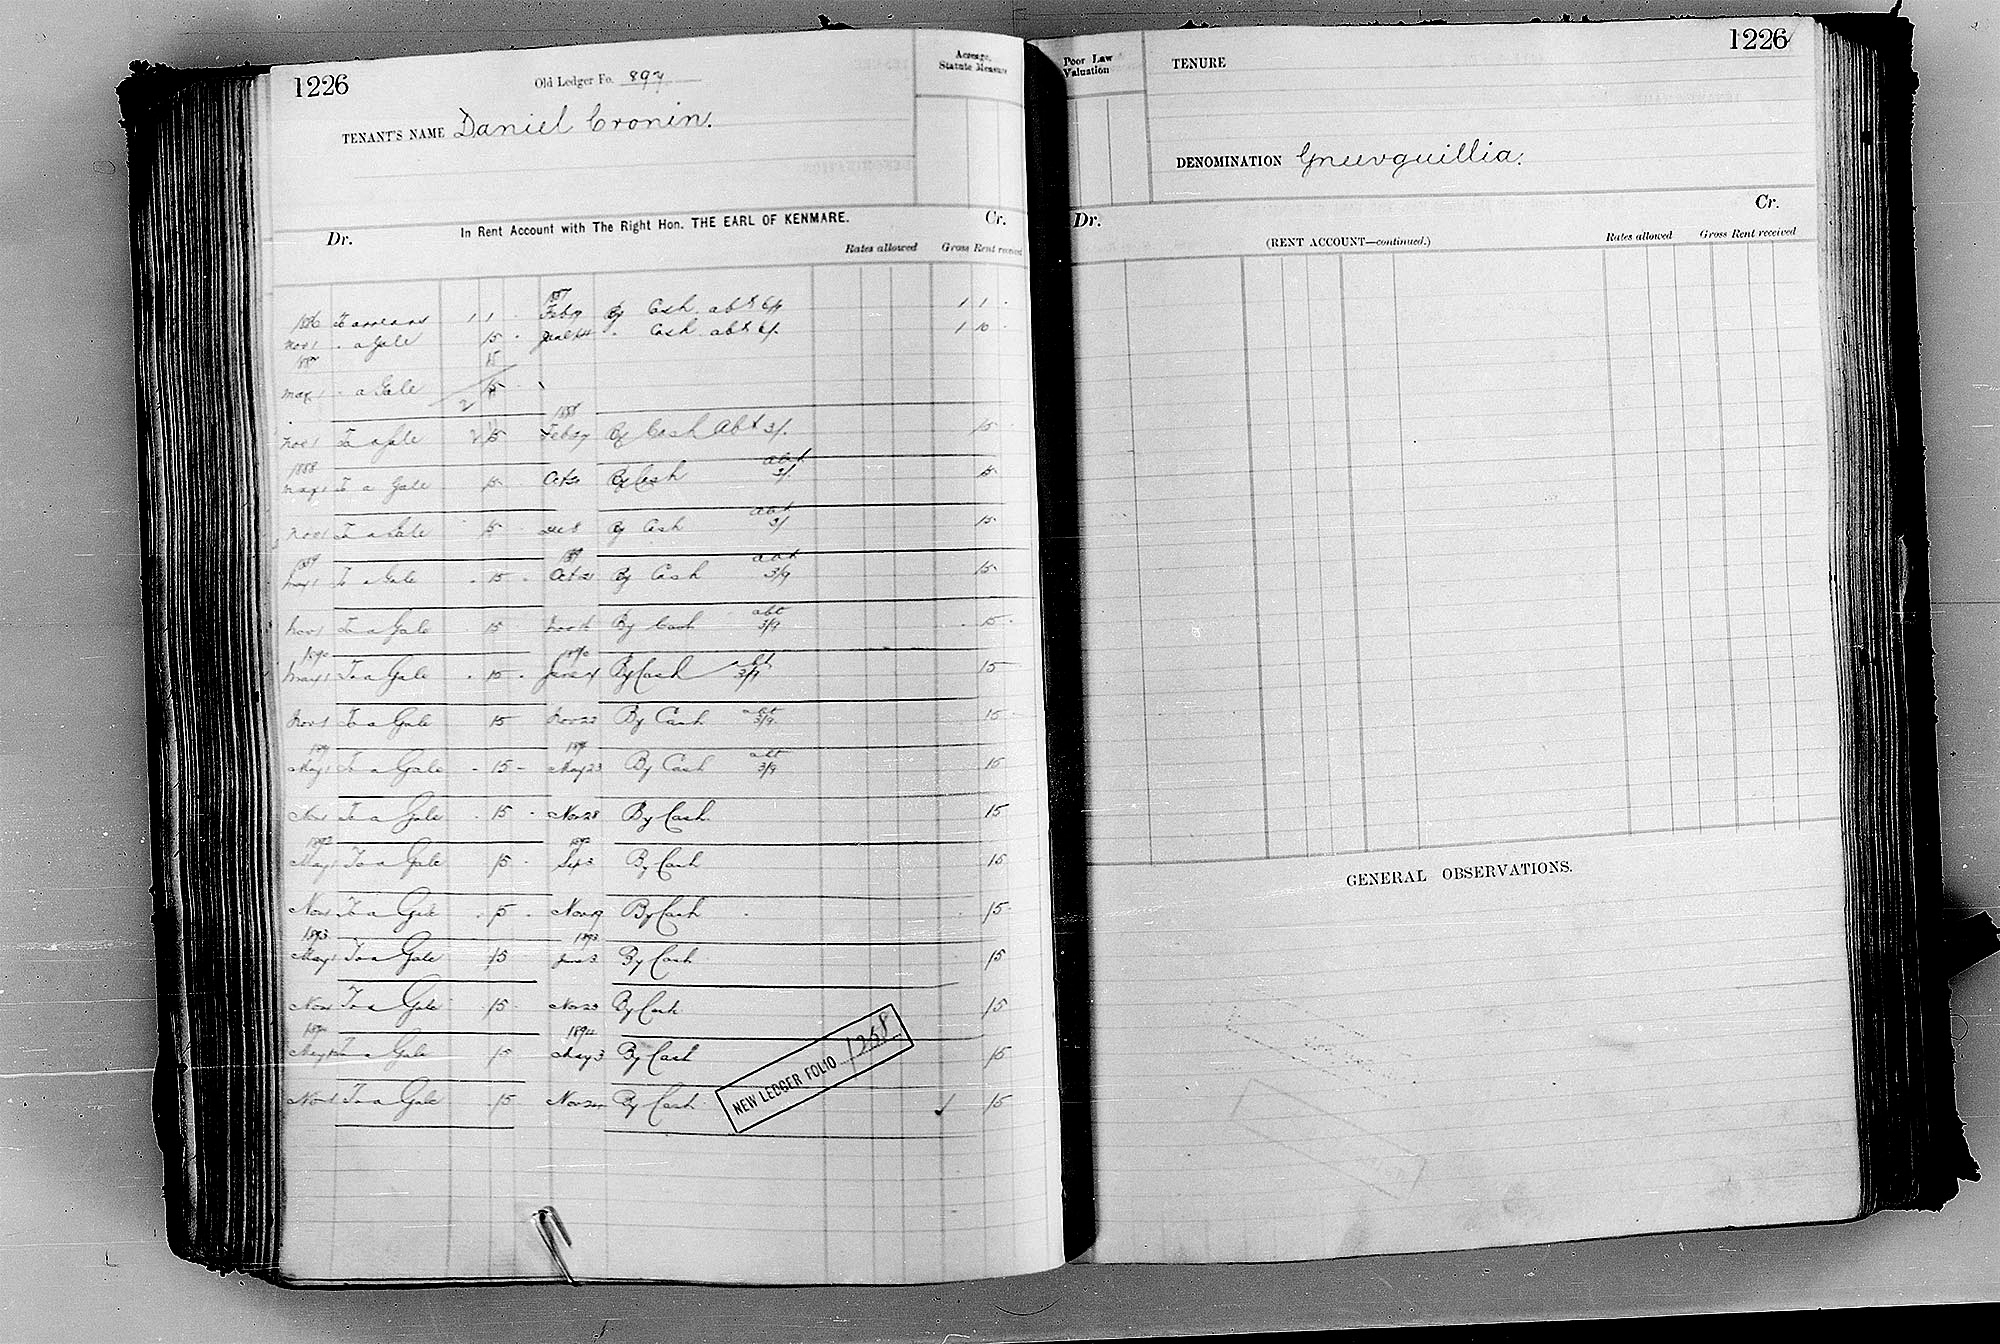 1226
Old Ledger Fo. 897
Acreage, Statute Measure
TENANT'S NAME Daniel Cronin.
In Rent Account with The Right Hon. THE EARL OF KENMARE.
Dr. Cr.
Rates allowed Gross Rent received
1887
1886 To arrears 1 1 Feby By Cash abt 6/9 1 1
Nov 1 " a Gale 15 " Cash abt 6/. 1 10
1887 15
May 1 " a Gale 15
2
1888
Nov 1 To a Gale 15 Feb 27 By Cash Abt 3/. 15
1888 abt
May 1 To a Gale 15 Oct By Cash 3/. 15
abt
Nov 1 To a Gale 15 Dec 8 By Cash 3/ 15
1889 1889 abt
May 1 To a Gale 15 Oct 21 By Cash 3/9 15
abt
Nov 1 To a Gale 15 Nov 16 By Cash 3/9 15
1890 1890 abt
May 1 To a Gale 15 June By Cash 3/9 15
abt
Nov 1 To a Gale 15 Nov 22 By Cash 3/9 15
1891 1891 abt
May 1 To a Gale 15 May 23 By Cash 3/9 15
Nov 1 To a Gale 15 Nov 28 By Cash 15
1892 1892
May 1 To a Gale 15 Sep 3 By Cash 15
Nov 1 To a Gale 15 Nov 19 By Cash 15
1893 1893
May 1 To a Gale 15 June 3 By Cash 15
Nov 1 To a Gale 15 Nov 23 By Cash 15
1894 1894
May 1 To a Gale 15 May 3 By Cash 15
Nov 1 To a Gale 15 Nov By Cash 15
NEW LEDGER FOLIO 1268
1226
Poor Law Valuation
TENURE
DENOMINATION Gneevguillia.
Dr. Cr.
(RENT ACCOUNT—continued.)
Rates allowed Gross Rent received
GENERAL OBSERVATIONS.